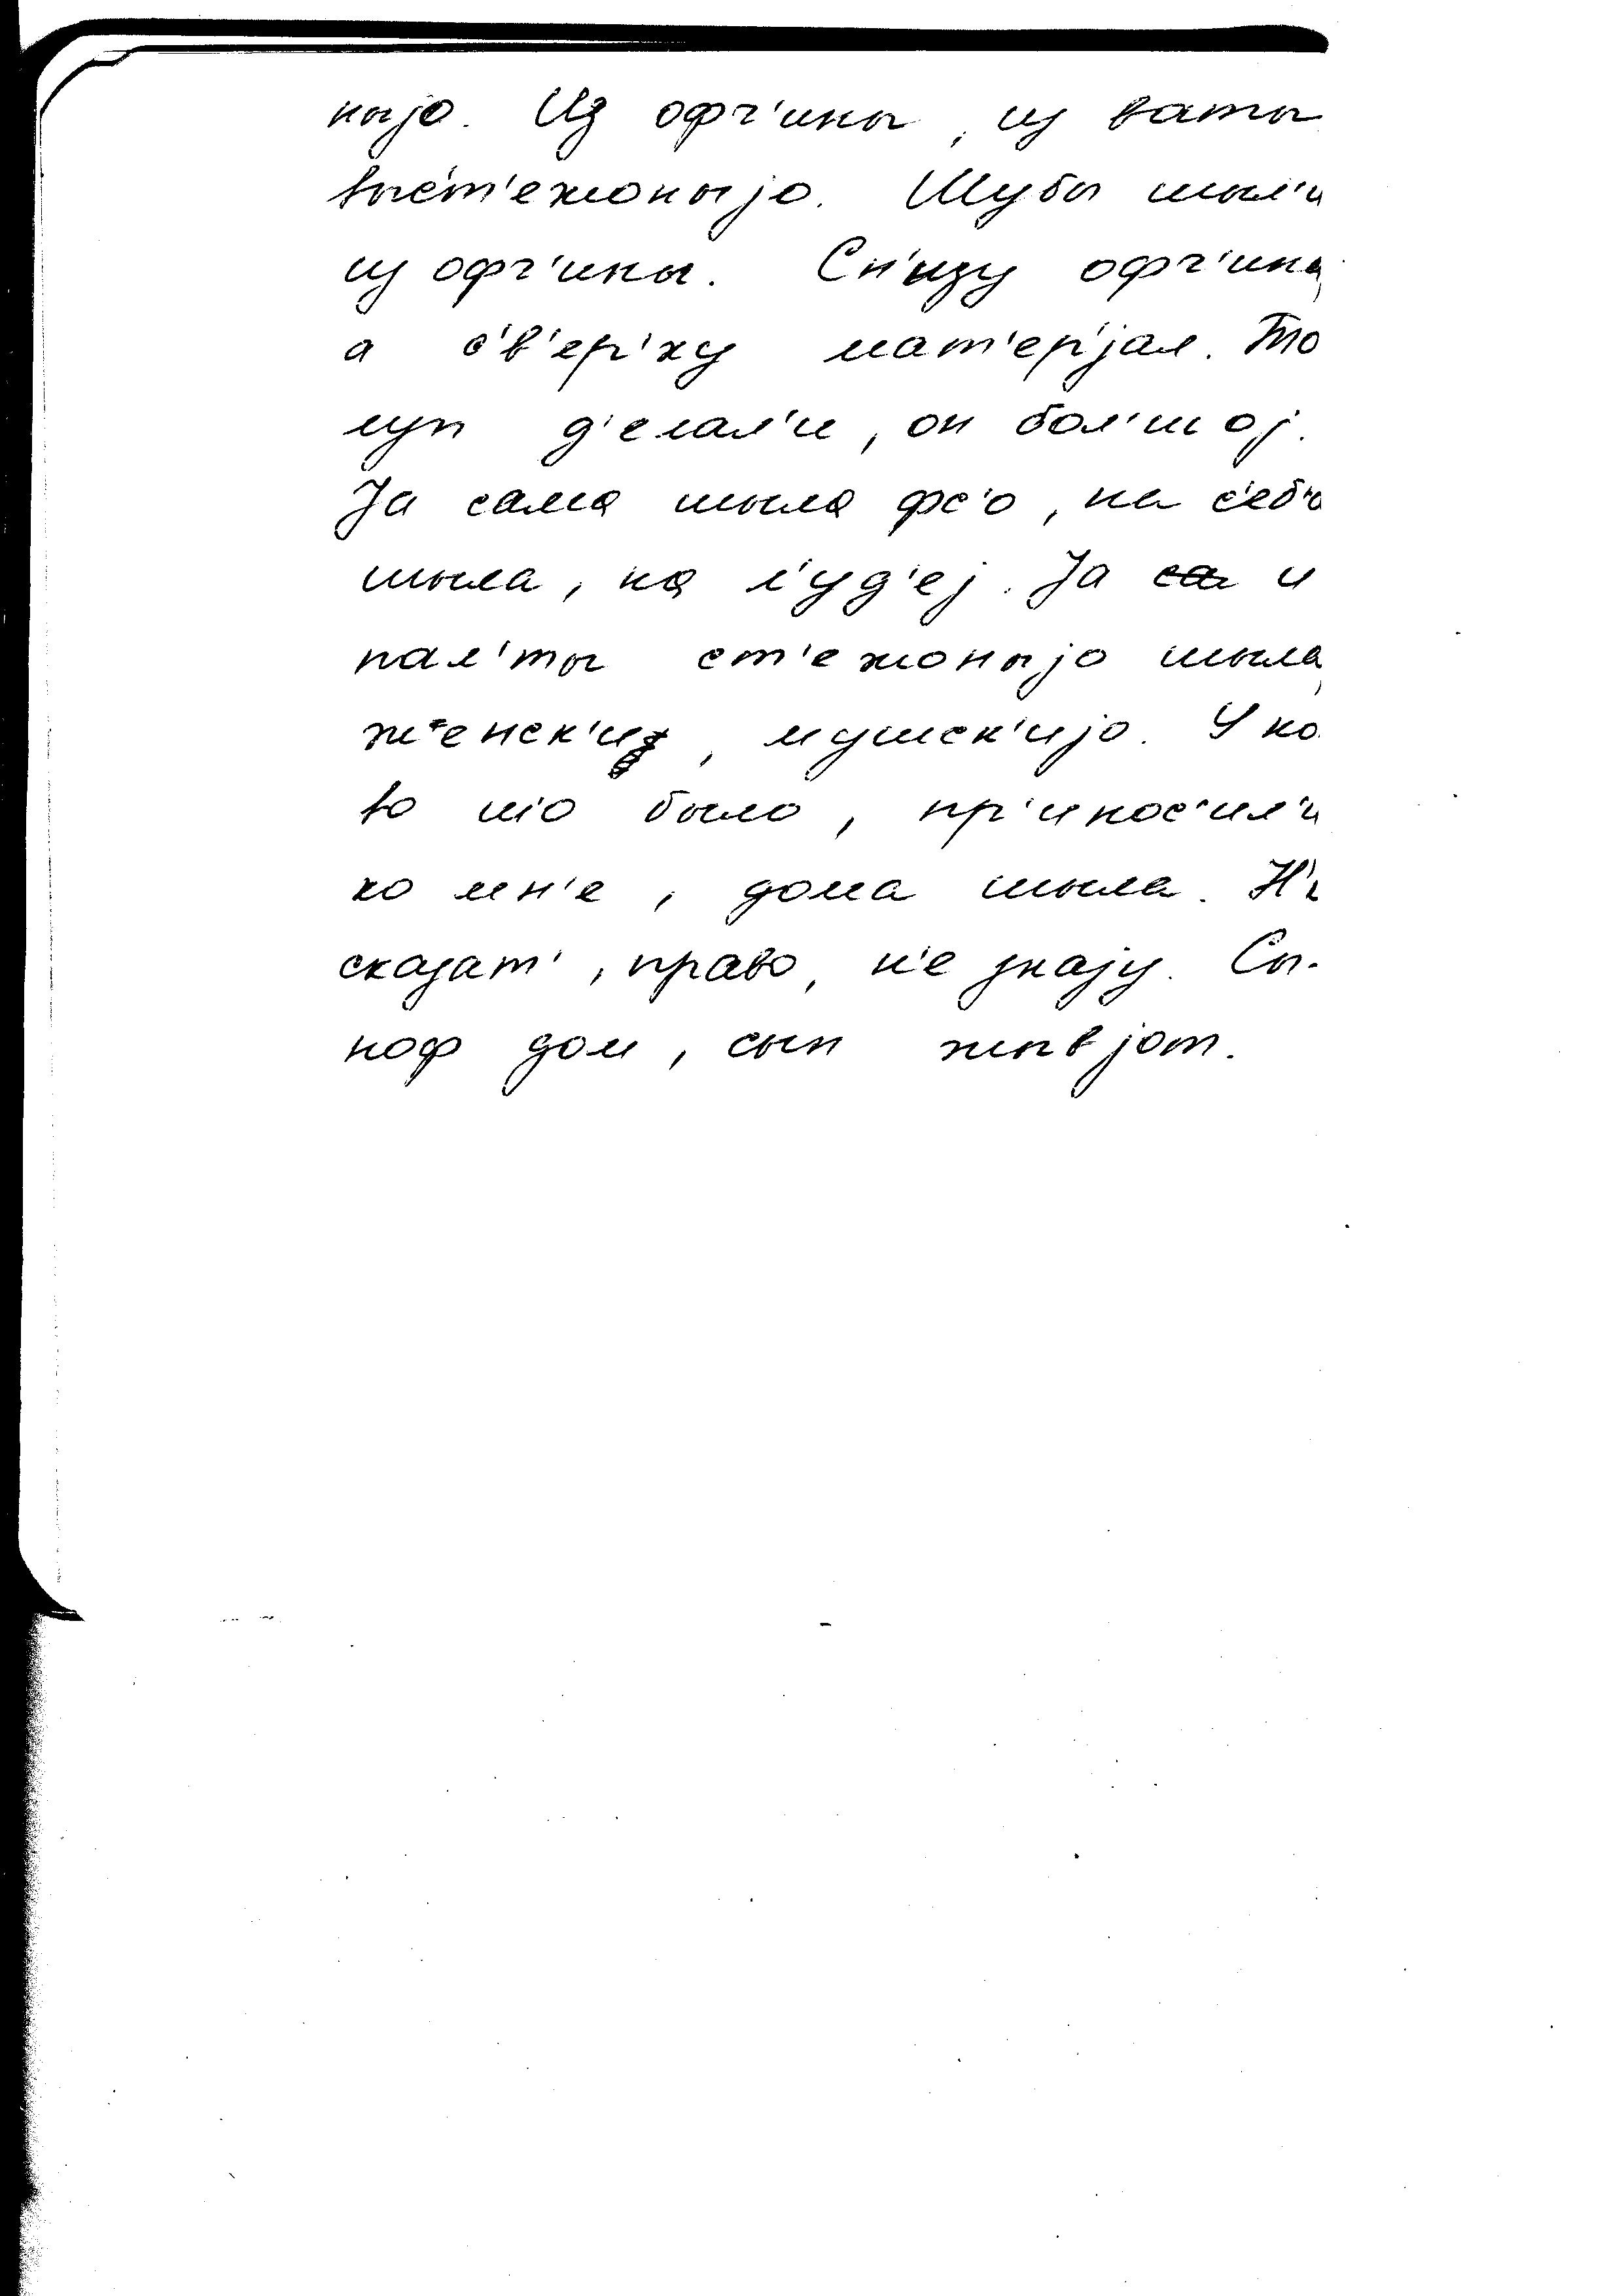 ныjо. Из офч'ины, из ваты
выс'т'ежоныjо. Шубы шыл'и
из офч'ины. Сн'изу офч'ина,
а с'в'ер'ху мат'ер'jал. То
луп д'елал'и, он бол'шоj.
Jа сама шыла фс'о, на с'еб'а
шыла, на л'уд'еj. Jа са и
пал'ты ст'ежоныjо шыла,
ж'енск'иjо, мушск'иjо. У ко
во што было, пр'инос'ил'и
ко мн'е, дома шыла. Н'е
сказат', право, н'е знаjу. Сы-
ноф дом, сын жывjот.